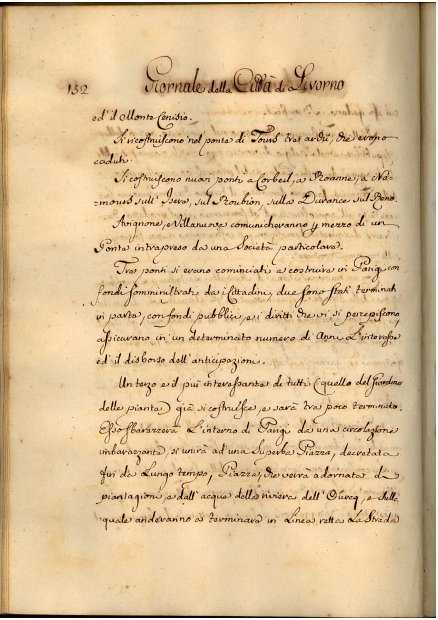 152 Giornale della Città di Livorno
ed' il Monte Cenisio.
Si ricostruiscono nel ponte di Tours tre archi, che erono
caduti.
Si costruiscono nuovi ponti a Corbeil, a Roanne, a Ne-
mours sull' Isera, sul Roubion, sulla Durance sul Reno.
Avignone, e Villanuova comunicheranno p mezzo di un
Ponte intrapreso da una Società particolare.
Tre ponti si erono cominciati a costruire in Parigi con
fondi somministrati da i Cittadini, due sono stati terminati
in parte, con fondi pubblici, e i diritti che vi si percepiscono,
assicurano in un determinato numero di Anni L'interesse
ed' il disborso dell' anticipazioni.
Un terzo e il più interessante di tutti (quello del Giardino
delle piante) già si costruisce, e sarà tra poco terminato.
Esso sbarazzerà L'interno di Parigi da una circolazione
imbarazzante, si unirà ad' una Superba Piazza, decretata
fin da Lungo tempo, Piazza, che verrà adornata di
piantagioni, e dall' acque della riviera dell' Ourcq, e dalla
quale anderanno a terminare in Linea retta La Strada